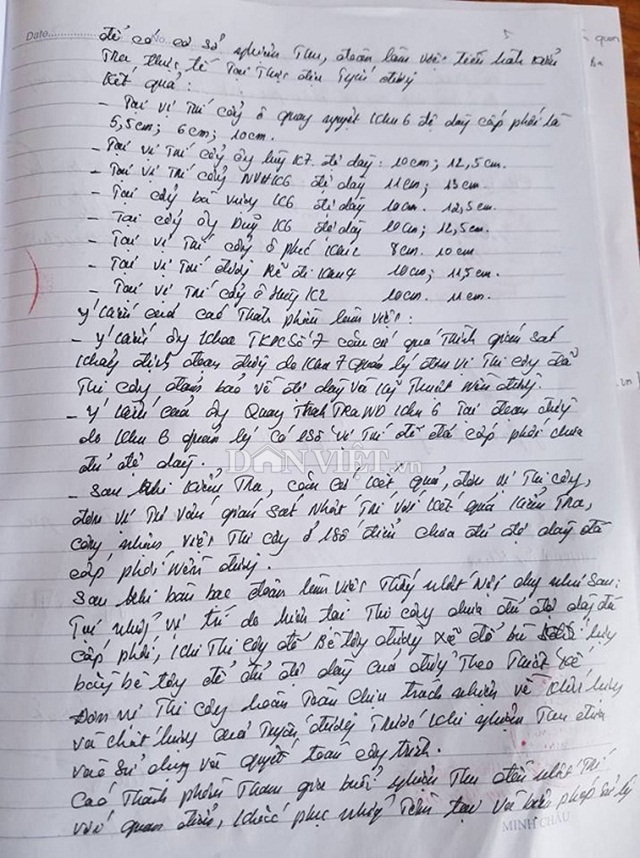 Date No
để có cơ sở nghiệm Thu, đoàn làm việc tiến hành kiểm
Tra thực tế Tại Thực địa Tuyến đường
kết quả:
- Tại vị Trí cổng ô quay nguyệt khu 6 độ dày cấp phối là
5,5cm; 6cm; 10cm.
- Tại vị Trí cổng ông K7 độ dày: 10cm; 12,5cm.
- Tại vị Trí cổng NVH K6 độ dày 11cm; 13cm.
- Tại cổng bà K6 độ dày 10cm. 12,5cm.
- Tại cổng ông Duy K6 độ dày 10cm; 12,5cm.
- Tại vị Trí cổng ô phú khu 2 8cm. 10cm
- Tại vị Trí đường rẽ đi khu 4 10cm; 11,5cm.
- Tại vị Trí cổng ô K2 10cm. 11cm.
ý kiến của các Thành phần làm việc:
- ý kiến ông Khoa TKPC Số 7 căn cứ quá Trình giám sát
khẳng định đoạn đường do khu 7 quản lý đơn vị Thi công đã
Thi công đảm bảo về độ dày và kỹ Thuật nền đường.
- ý kiến của ông Quang Thanh Tra ND khu 6 Tại đoạn đường
do khu 6 quản lý có 1 số vị Trí đổ đá cấp phối chưa
đủ độ dày.
- Sau khi kiểm Tra, căn cứ kết quả, đơn vị Thi công,
đơn vị Tư vấn giám sát nhất Trí với kết quả kiểm Tra,
công nhận việc Thi công ở 1 số điểm chưa đủ độ dày đá
cấp phối nền đường.
Sau khi bàn bạc đoàn làm việc Thống nhất Nội dung như sau:
Tại những vị trí do hiện tại Thi công chưa đủ độ dày đá
cấp phối, khi Thi công đổ Bê tông đường sẽ đổ bù
bằng bê tông để đủ độ dày của đường Theo Thiết kế
Đơn vị Thi công hoàn Toàn chịu trách nhiệm về khối lượng
và chất lượng của Tuyến đường Trước khi nghiệm Thu đưa
vào sử dụng và quyết toán công trình.
Các Thành phần Tham gia buổi nghiệm Thu đều nhất Trí
với quan điểm, khắc phục những Tồn tại và biện pháp xử lý
DÂN VIỆT.vn
MINH CHÂU
quan